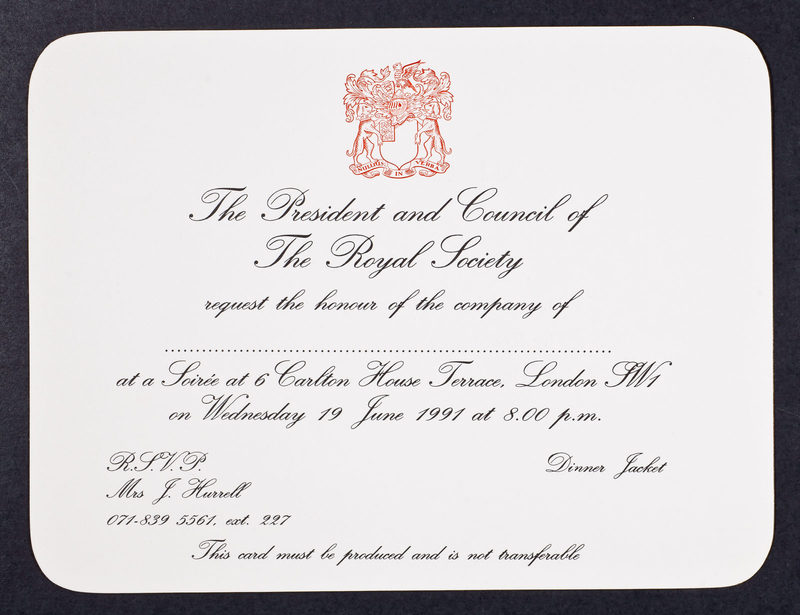 NULLIUS IN VERBA
The President and Council of
The Royal Society
request the honour of the company of
............................................................................................
at a Soirée at 6 Carlton House Terrace, London SW1
on Wednesday 19 June 1991 at 8.00 p.m.
R.S.V.P.
Dinner Jacket
Mrs J. Hurrell
071-839 5561, ext. 227
This card must be produced and is not transferable